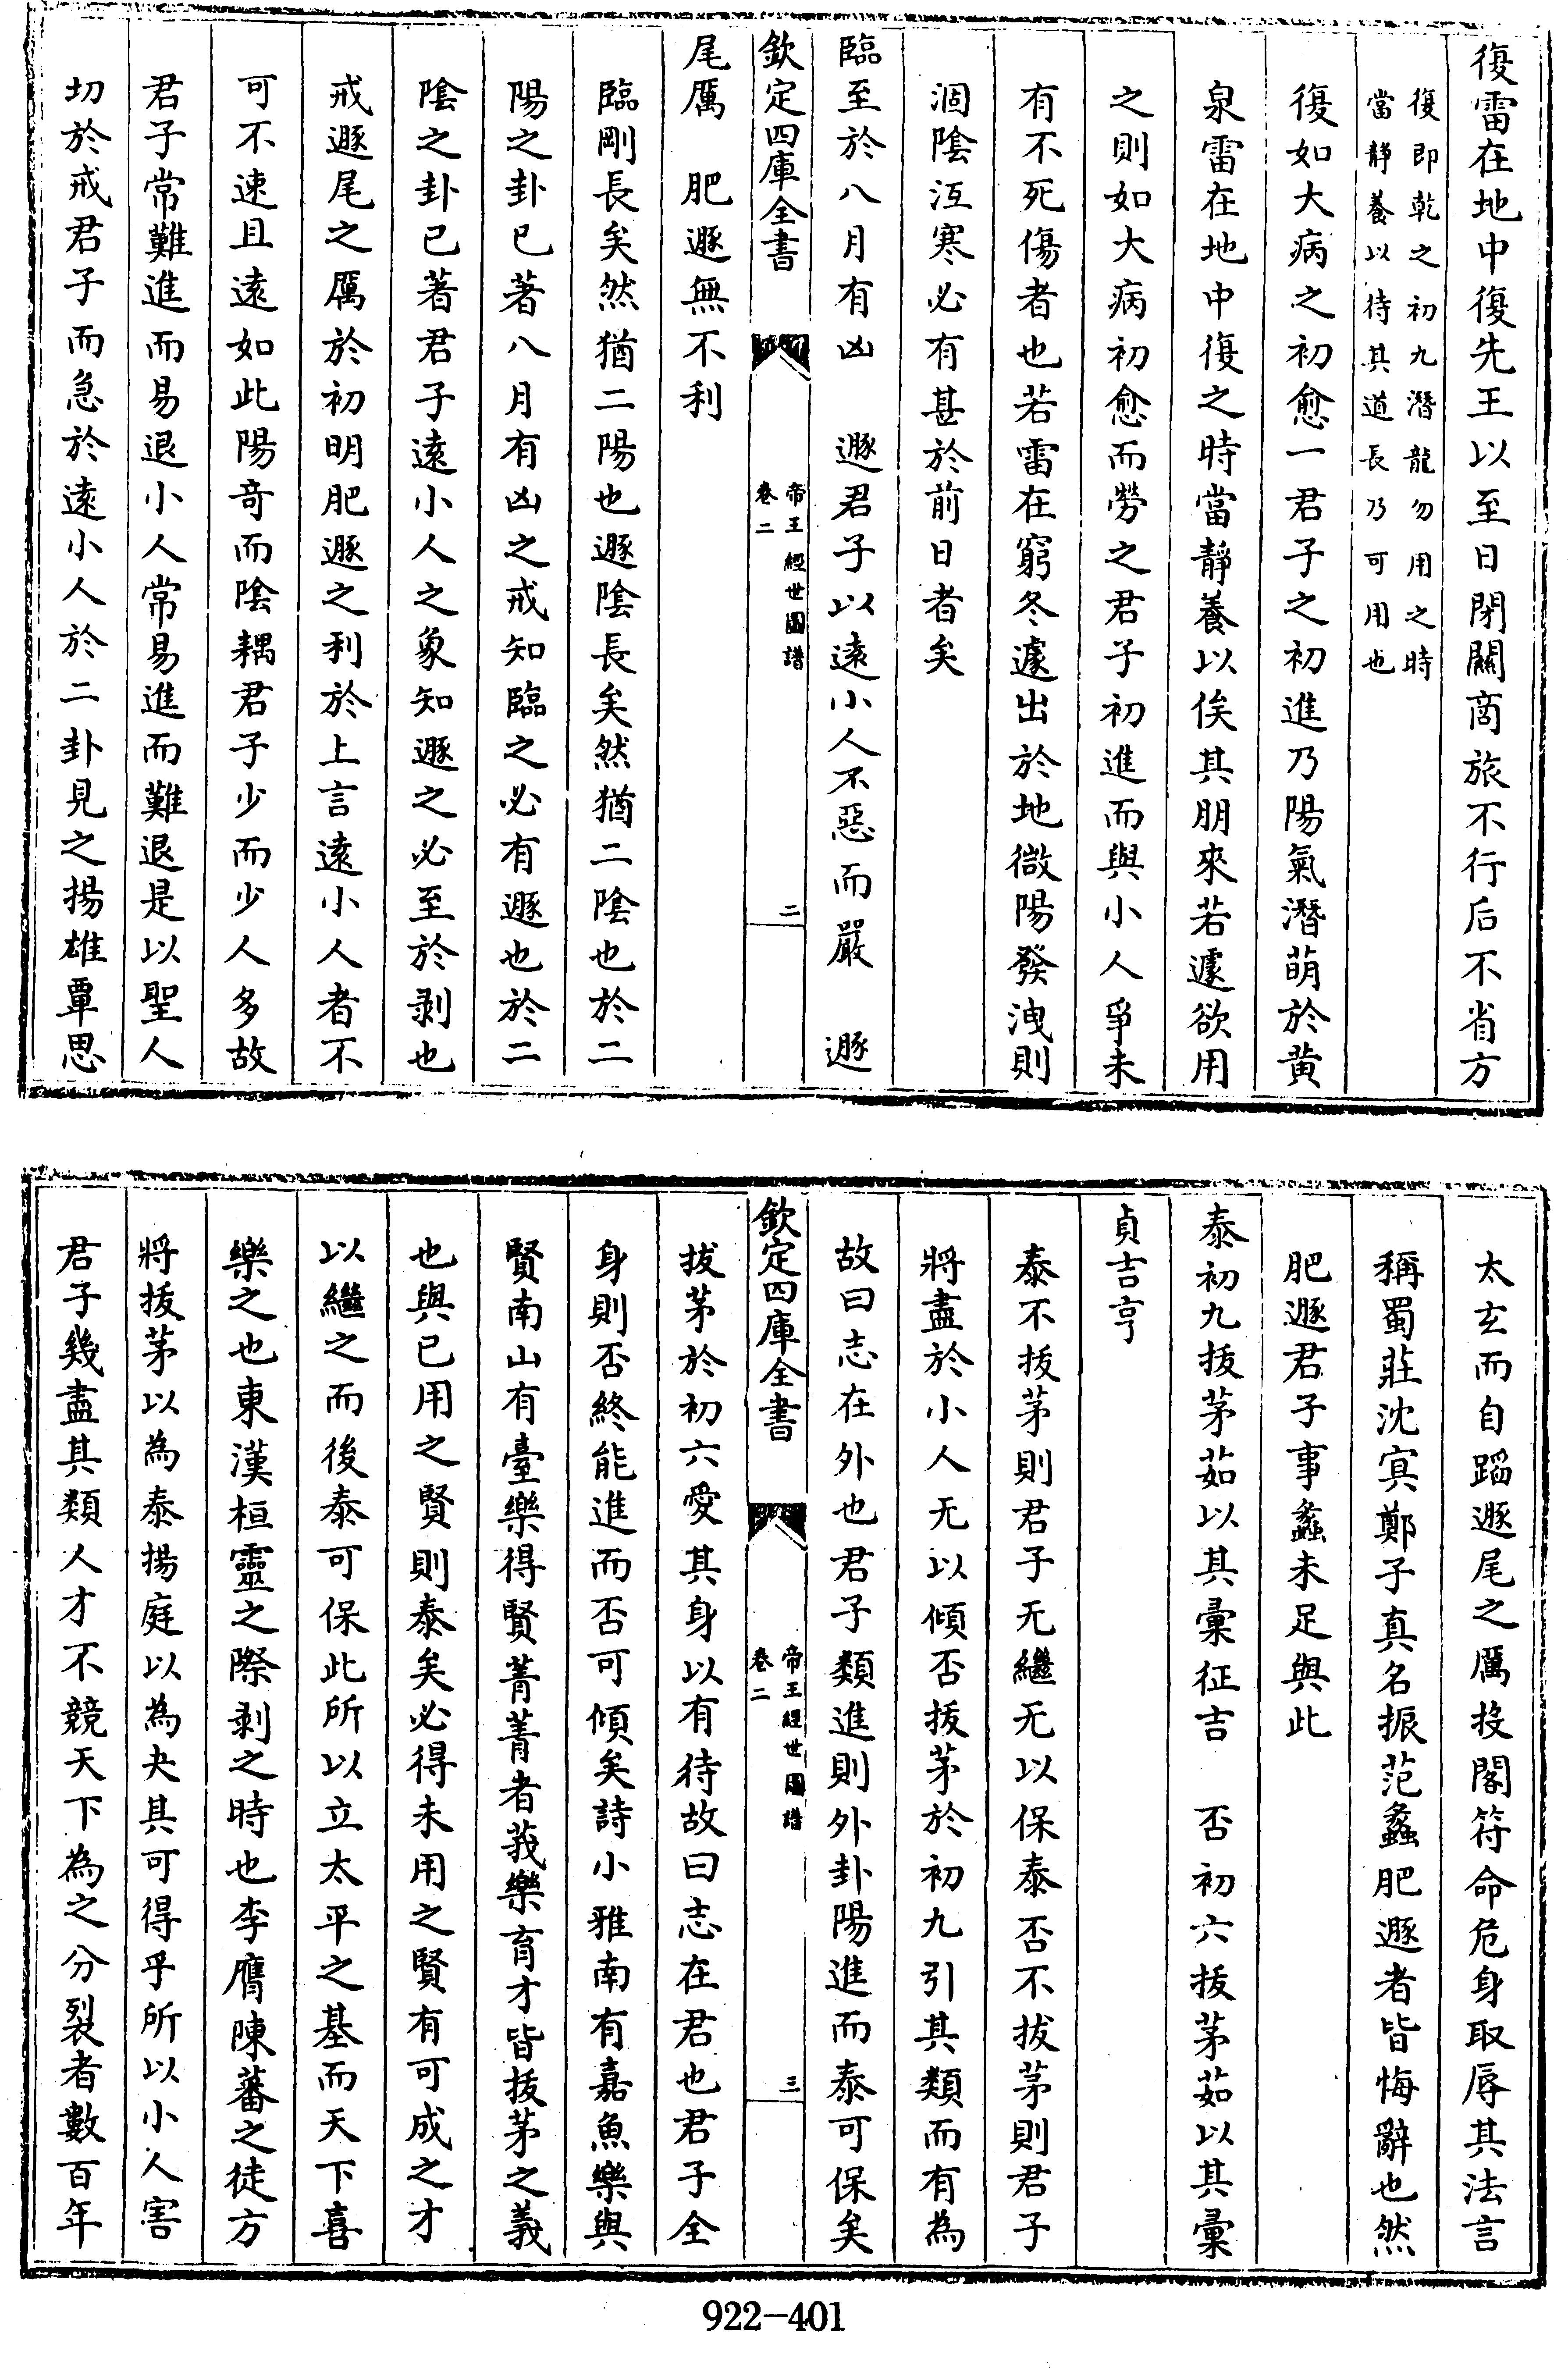 復雷在地中復先王以至日閉關商旅不行后不省方
復即乾之初九潛龍勿用之時
當靜養以待其道長乃可用也
復如大病之初愈一君子之初進乃陽氣潛萌於黃
泉雷在地中復之時當靜養以俟其朋來若遽欲用
之則如大病初愈而勞之君子初進而與小人爭未
有不死傷者也若雷在窮冬遽出於地微陽發洩則
涸陰沍寒必有甚於前日者矣
臨至於八月有凶　遯君子以遠小人不惡而嚴　遯
欽定四庫全書
帝王經世圖譜
卷二
二
尾厲　肥遯無不利
臨剛長矣然猶二陽也遯陰長矣然猶二陰也於二
陽之卦已著八月有凶之戒知臨之必有遯也於二
陰之卦已著君子遠小人之象知遯之必至於剥也
戒遯尾之厲於初明肥遯之利於上言遠小人者不
可不速且遠如此陽奇而陰耦君子少而少人多故
君子常難進而易退小人常易進而難退是以聖人
切於戒君子而急於遠小人於二卦見之揚雄覃思
太玄而自蹈遯尾之厲投閣符命危身取辱其法言
稱蜀莊沈冥鄭子真名振范蠡肥遯者皆悔辭也然
肥遯君子事蠡未足與此
泰初九拔茅茹以其彙征吉　否初六拔茅茹以其彙
貞吉亨
泰不拔茅則君子无繼无以保泰否不拔茅則君子
將盡於小人无以傾否拔茅於初九引其類而有為
故曰志在外也君子類進則外卦陽進而泰可保矣
欽定四庫全書
帝王經世圖譜
卷二
三
拔茅於初六愛其身以有待故曰志在君也君子全
身則否終能進而否可傾矣詩小雅南有嘉魚樂與
賢南山有臺樂得賢菁菁者莪樂育才皆拔茅之義
也與已用之賢則泰矣必得未用之賢有可成之才
以繼之而後泰可保此所以立太平之基而天下喜
樂之也東漢桓靈之際剥之時也李膺陳蕃之徒方
將拔茅以為泰揚庭以為夬其可得乎所以小人害
君子幾盡其類人才不競天下為之分裂者數百年
922-401